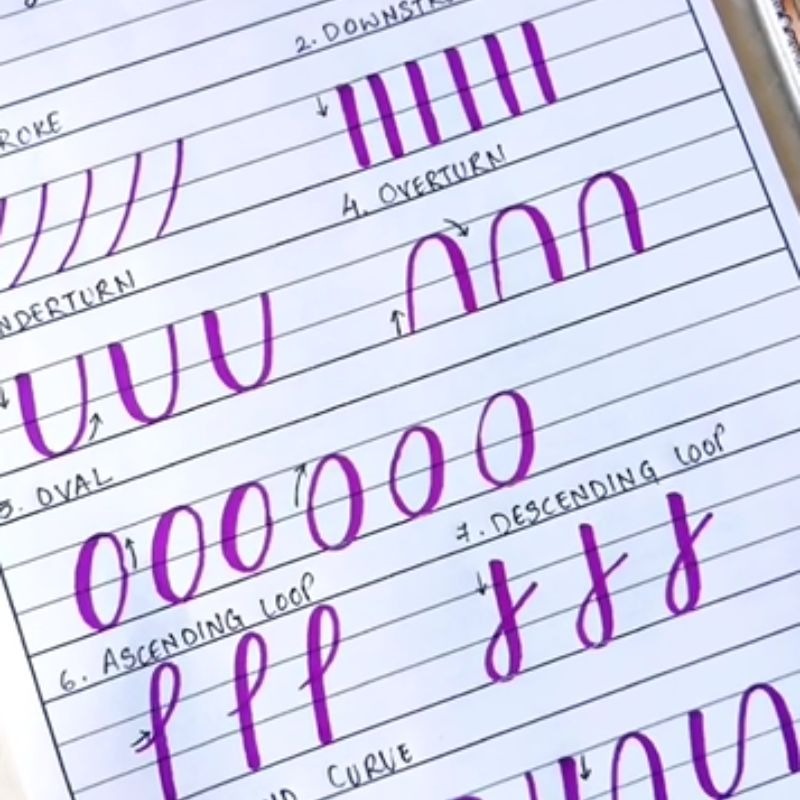 2. DOWNSTR
ROKE
4. OVERTURN
NDERTURN
5. OVAL
7. DESCENDING LOOP
6. ASCENDING LOOP
ND CURVE